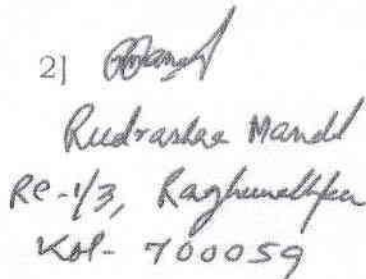 2]
Rudrashee Mandl
RC-1/3, Raghunathpur
Kol- 700059